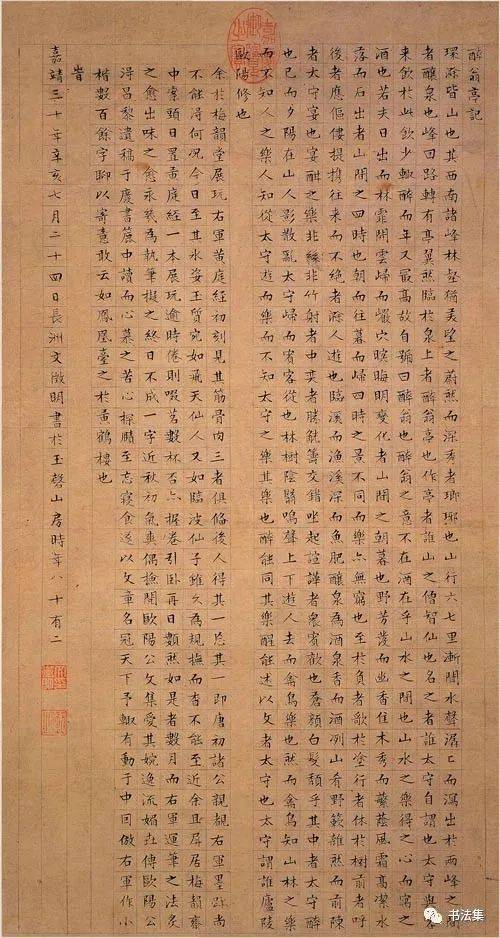 醉翁亭記
環滁皆山也其西南諸峰林壑猶美望之蔚然而深秀者瑯琊也山行六七里漸聞水聲潺々而瀉出於兩峰之間
者釀泉也峰回路轉有亭翼然臨於泉上者醉翁亭也作亭者誰山之僧智仙也名之者誰太守自謂也太守與客
來飲於此飲少輒醉而年又最高故自號曰醉翁也醉翁之意不在酒在乎山水之間也山水之樂得之心而寓之
酒也若夫日出而林霏開雲歸而巖穴暝晦明變化者山間之朝暮也野芳發而幽香佳木秀而繁蔭風霜高潔水
落而石出者山間之四時也朝而往暮而歸四時之景不同而樂亦無窮也至於負者歌於塗行者休於樹前者呼
後者應傴僂提攜往來而不絕者滁人遊也臨溪而漁溪深而魚肥釀泉為酒泉香而酒冽山肴野蔌雜然而前陳
者太守宴也宴酣之樂非絲非竹射者中奕者勝觥籌交錯坐起諠譁者眾賓歡也蒼顏白髮頹乎其中者太守醉
也已而夕陽在山人影散亂太守歸而賓客從也林樹陰翳鳴聲上下遊人去而禽鳥樂也然而禽鳥知山林之樂
而不知人之樂人知從太守遊而樂而不知太守之樂其樂也醉能同其樂醒能述以文者太守也太守謂誰廬陵
歐陽修也
余於梅韻堂展玩右軍黃庭經初刻見其筋骨肉三者俱備後人得其一忘其一即唐初諸公親覩右軍墨跡尚
不能得何況今日至其永姿玉質宛如飛天仙人又如臨波仙子雖久為規撫而杳不能至近余且屏居梅韻齋
中案頭日置黃庭經一本展玩逾時倦則啜茗數杯否亦握卷引臥再日數然如是者數月而右軍運筆之法炙
之愈出味之愈永我為執筆擬之終日不成一字近秋初氣爽偶撿開歐陽公文集愛其婉逸流媚世傳歐陽公
得昌黎遺稿于廢書簏中讀而心慕之苦心探賾至忘寢食遂以文章名冠天下予輒有動于中因倣右軍作小
楷數百餘字聊以寄意敢云如鳳凰臺之於黃鶴樓也
旹
嘉靖三十年辛亥七月二十四日長洲文徵明書於玉磬山房時年八十有二
書法集